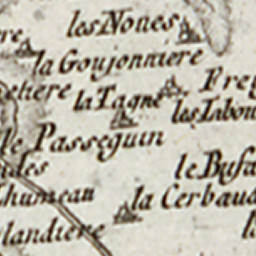 les Noues
re
la Goujonniere
etiere la Tagne Frey
les Tabou
le Passeguin
udes le Bufa
Chumeau la Cerbaud
landiere